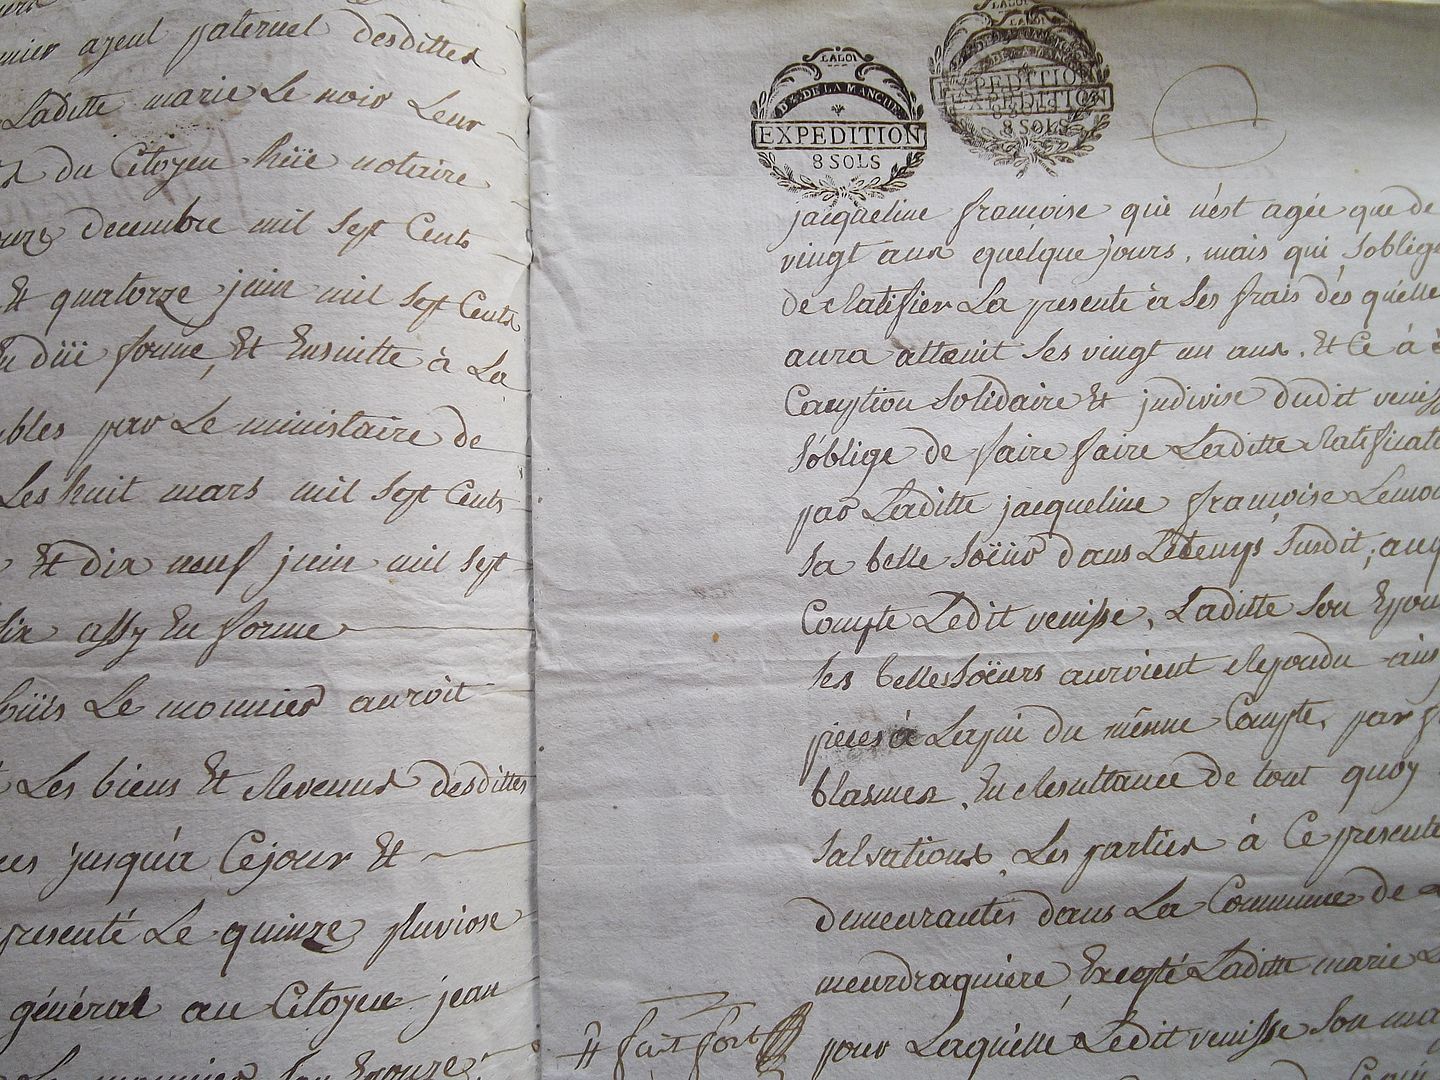 ayeul paternel desdittes
Laditte marie Le noir Leur
du Citoyen hüe notaire
decembre mil Sept Cents
Et quatorze juin mil Sept Cents
düe forme, Et Ensuitte à La
par Le ministaire de
Les huit mars mil Sept Cents
Et dix neuf juin mil Sept
assy En forme
Le monnier auroit
Les biens Et Revenus desdittes
jusqu'à Cejour Et
presenté Le quinze pluviose
général au Citoyen jean
LALOI
DT. DE LA MANCHE
EXPEDITION
8 SOLS
LALOI
EXPEDITION
8 SOLS
jacqueline francoise qui n'est agée que de
vingt ans quelque jours, mais qui s'oblige
de Ratifier La presente à Ses frais dès quelle
aura atteint Ses vingt un ans, Et Ce à
Caution Solidaire Et jndivise dudit veniss
S'oblige de faire faire Laditte Ratificat
par Laditte jacqueline francoise Lemon
Sa belle Soeür dans Letemps Susdit, auq
Compte Ledit venisse, Laditte Son Epou
Ses bellesSoëurs auroient Repondu ains
pieces à Lapui du même Compte, par f
blasmes, En Resultance de tout quoy
Salvations, Les parties à Ce presente
demeurantes dans La Commune de
meurdraquiere Excepté Laditte marie L
pour Laquelle Ledit venisse Son ma
fait fort